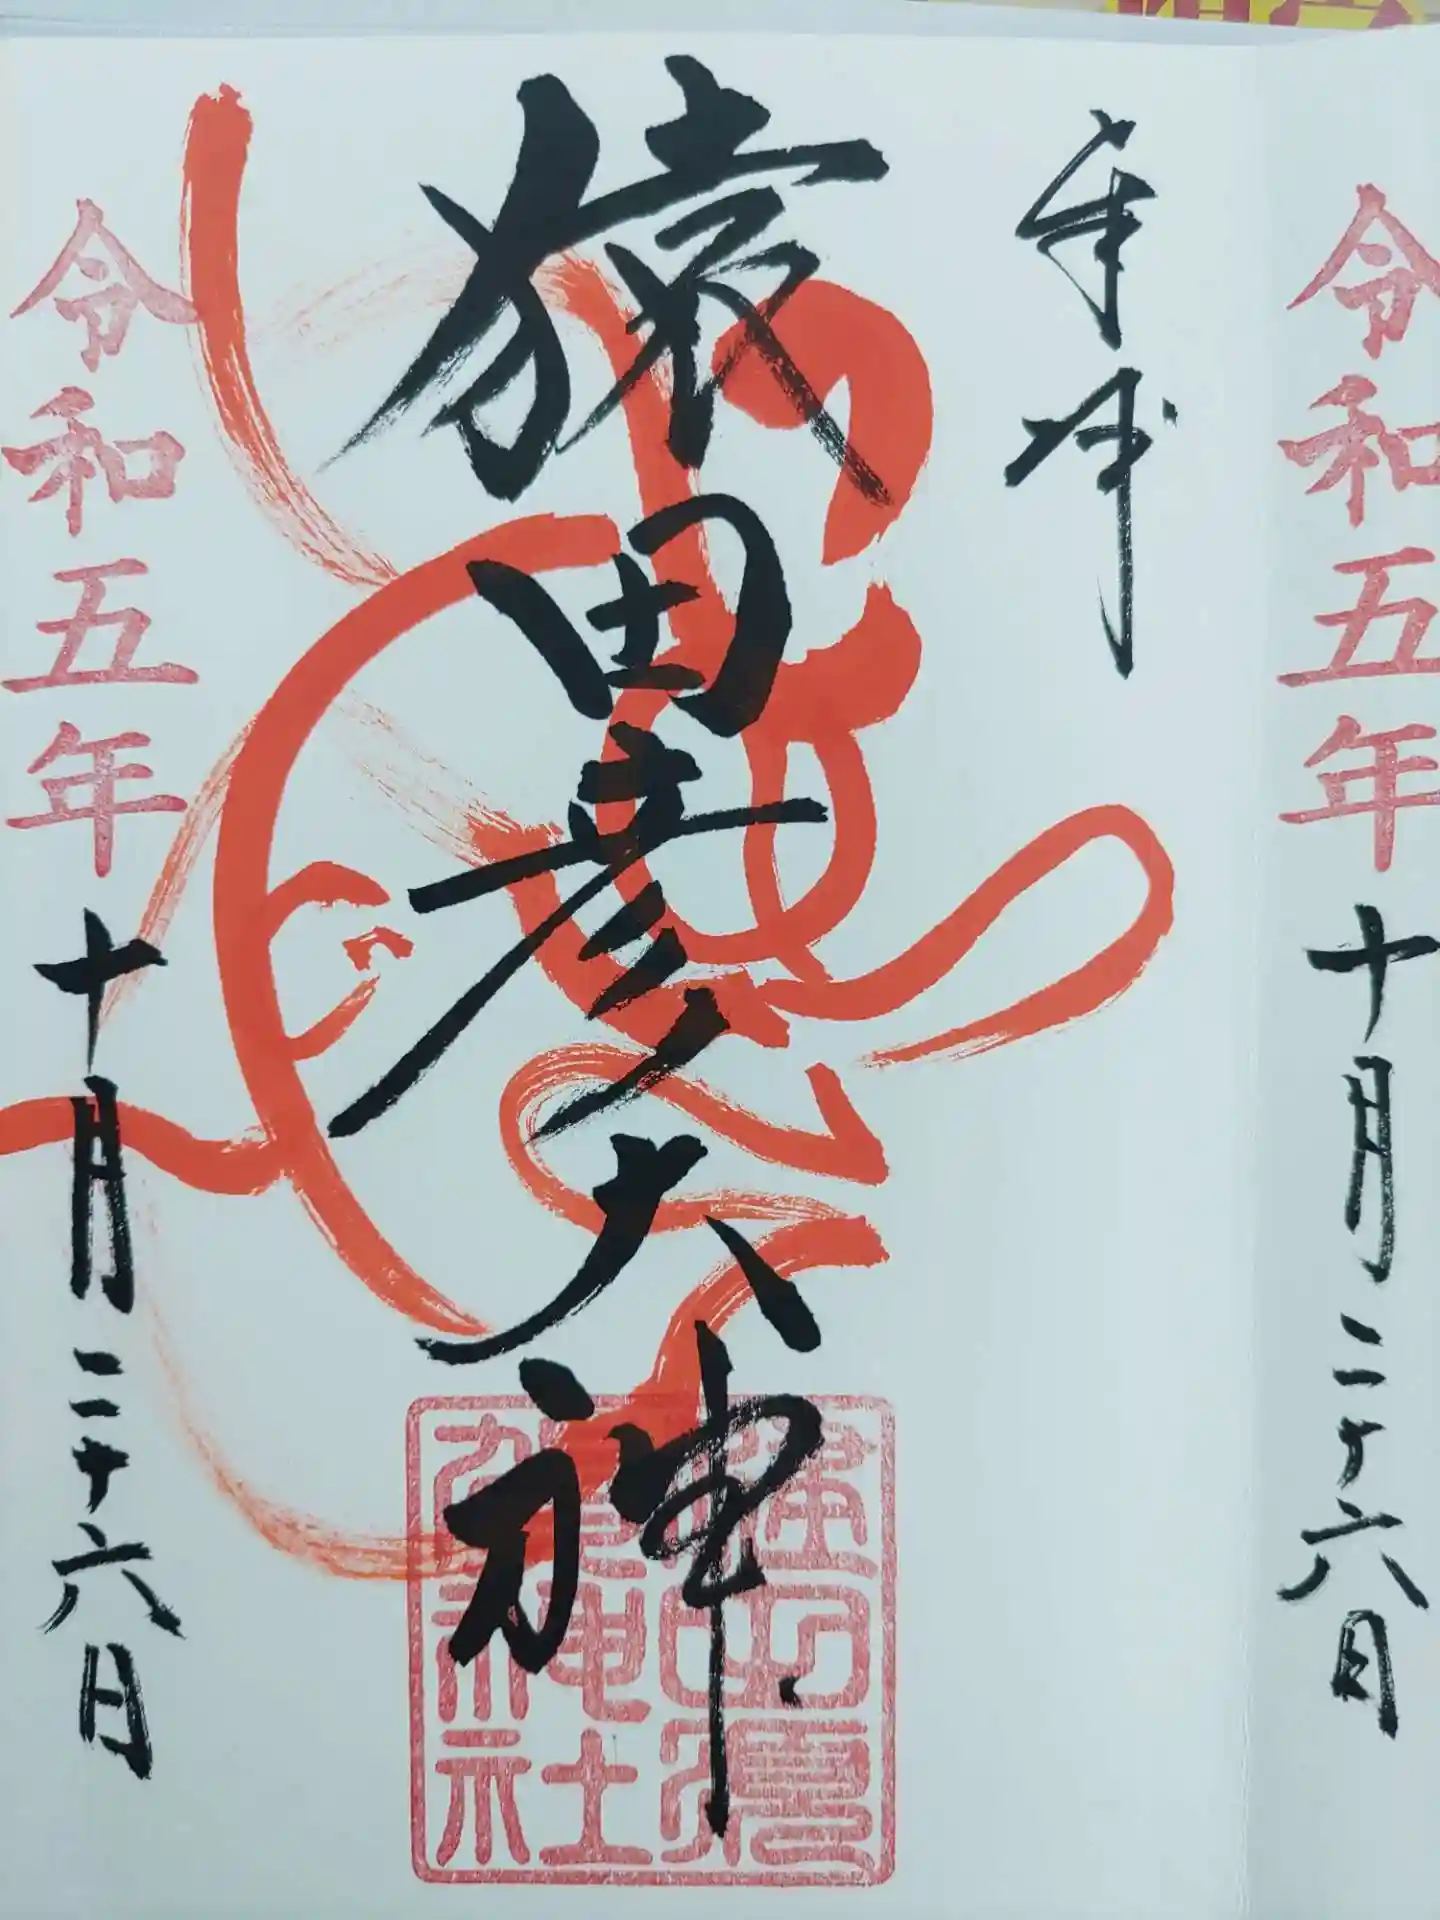 令和五年十月二十六日
奉拝
猿田彦大神
令和五年十月二十六日